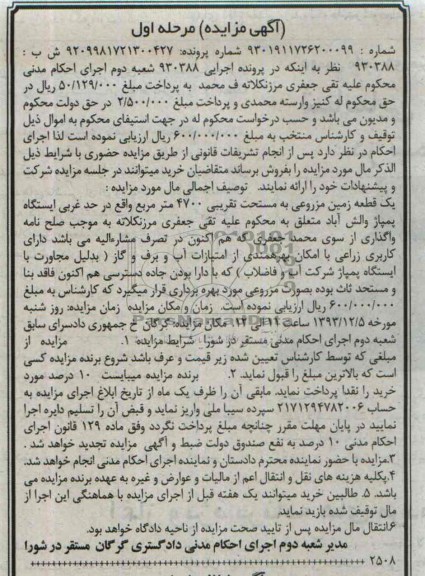 (آگهی مزایده) مرحله اول
شماره : ۹۳۰۱۹۱۱۷۲۶۲۰۰۰۹۹ شماره پرونده: ۹۲۰۹۹۸۱۷۲۱۳۰۰۴۲۷ ش ب :
۹۳۰۳۸۸ نظر به اینکه در پرونده اجرایی ۹۳۰۳۸۸ شعبه دوم اجرای احکام مدنی
محکوم علیه تقی جعفری مرزنکلاته ف محمد به پرداخت مبلغ ۵۰/۱۲۹/۰۰۰ ریال در
حق محکوم له کنیز وارسته محمدی و پرداخت مبلغ ۲/۵۰۰/۰۰۰ در حق دولت محکوم
و مدیون می باشد و حسب درخواست محکوم له در جهت استیفای محکوم به اموال ذیل
توقیف و کارشناس منتخب به مبلغ ۶۰۰/۰۰۰/۰۰۰ ریال ارزیابی نموده است لذا اجرای
احکام در نظر دارد پس از انجام تشریفات قانونی از طریق مزایده حضوری با شرایط ذیل
الذکر مال مورد مزایده را بفروش برساند متقاضیان خرید میتوانند در جلسه مزایده شرکت
و پیشنهادات خود را ارائه نمایند. توصیف اجمالی مال مورد مزایده :
یک قطعه زمین مزروعی به مساحت تقریبی ۴۷۰۰ متر مربع واقع در حد غربی ایستگاه
پمپاژ والش آباد متعلق به محکوم علیه تقی جعفری مرزنکلاته به موجب صلح نامه
واگذاری از سوی محمد جعفری که هم اکنون در تصرف مشارالیه می باشد دارای
کاربری زراعی با امکان بهره‌مندی از امتیازات آب و برق و گاز ( بدلیل مجاورت با
ایستگاه پمپاژ شرکت آب و فاضلاب ) که با دارا بودن جاده دسترسی هم اکنون فاقد بنا
و مستحد ثات بوده بصورت مزروعی مورد بهره برداری قرار میگیرد که کارشناس به مبلغ
۶۰۰/۰۰۰/۰۰۰ ریال ارزیابی نموده است. زمان و مکان مزایده: زمان مزایده: روز شنبه
مورخه ۱۳۹۳/۱۲/۵ ساعت الی ۱۲ مکان مزایده: گرگان خ جمهوری دادسرای سابق
شعبه دوم اجرای احکام مدنی مستقر در شورا. شرایط مزایده: ۱. مزایده از
مبلغی که توسط کارشناس تعیین شده زیر قیمت و عرف باشد شروع برنده مزایده کسی
است که بالاترین مبلغ را قبول نماید. ۲. برنده مزایده میبایست ۱۰ درصد مورد
خرید را نقدا پرداخت نماید. مابقی آن را ظرف یک ماه از تاریخ ابلاغ اجرای مزایده به
حساب ۲۱۷۱۲۹۴۷۸۲۰۰۶ سپرده سیبا ملی واریز نماید و قبض آن را تسلیم دایره اجرا
نمایید در پایان مهلت مقرر چنانچه مبلغ پرداخت نگردد وفق ماده ۱۲۹ قانون اجرای
احکام مدنی ۱۰ درصد به نفع صندوق دولت ضبط و آگهی مزایده تجدید خواهد شد .
۳.مزایده با حضور نماینده محترم دادستان و نماینده اجرای احکام مدنی انجام خواهد شد.
۴.کلیه هزینه های نقل و انتقال اعم از مالیات و عوارض و غیره به عهده برنده مزایده می
باشد. ۵. طالبین خرید میتوانند یک هفته قبل از اجرای مزایده با هماهنگی این اجرا از
مال توقیف شده بازید نماید.
۶.انتقال مال مزایده پس از تایید صحت مزایده از ناحیه دادگاه خواهد بود.
مدیر شعبه دوم اجرای احکام مدنی دادگستری گرگان مستقر در شورا
۲۵۰۸